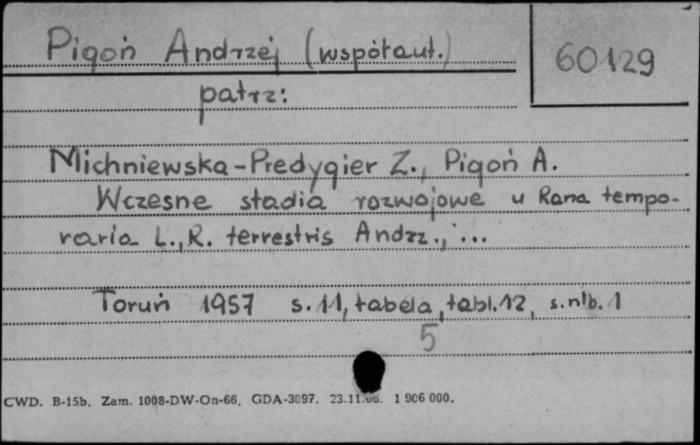 Pigoń Andrzej (współaut.)
60129
patrz:
Michniewska-Predygier Z., Pigoń A.
Wczesne stadia rozwojowe u Rana tempo-
raria L., R. terrestris Andrz., ...
Toruń 1957 s. 11, tabela, tabl. 12, s. nlb. 1
5
CWD. B-15b. Zam. 1008-DW-On-66. GDA-3097. 23.11.66. 1 906 000.